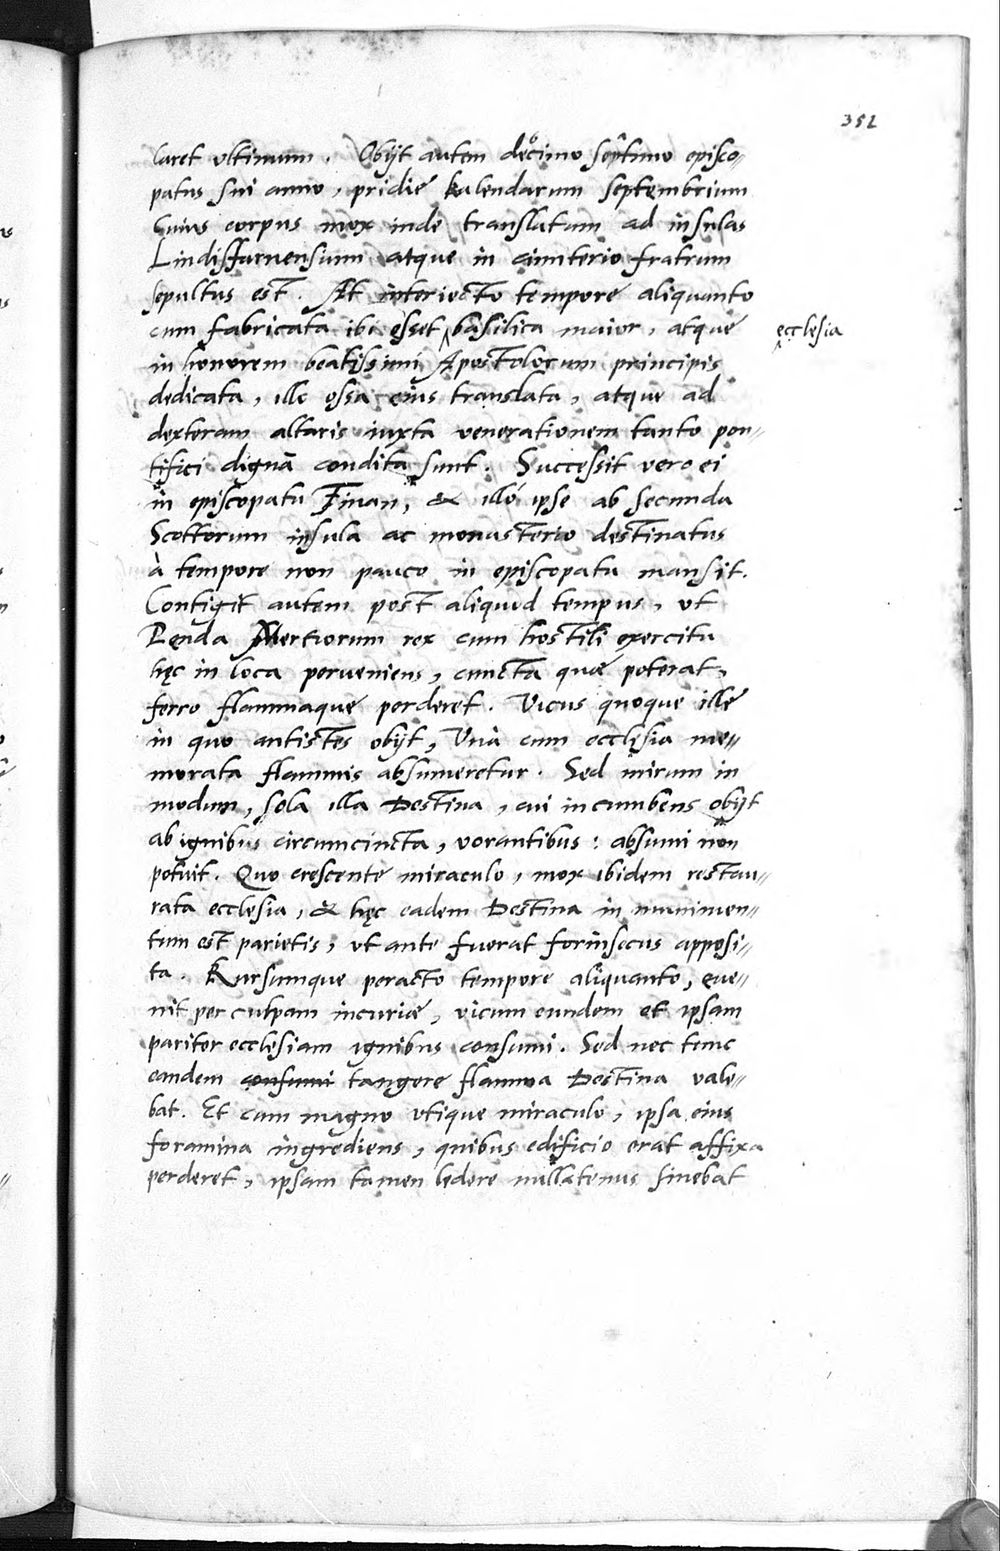 352
laret vltimum. Obijt autem decimo septimo episco-
patus sui anno, pridie kalendarum septembrium
Cuius corpus mox inde translatum ad insulas
Lindisfarnensium atque in cimiterio fratrum
sepultus est. At interiecto tempore aliquanto
cum fabricata ibi esset basilica maior, atque
ecclesia
in honorem beatissimi Apostolorum principis
dedicata, illo ossa eius translata, atque ad
dexteram altaris iuxta venerationem tanto pon-
tifici dignã condita sunt. Successit vero ei
in episcopatu Finan, & illó ipse ab secunda
Scottorum insula ac monasterio destinatus
à tempore non pauco in episcopatu mansit.
Contigit autem post aliquod tempus, vt
Penda Mertiorum rex cum hostili exercitu
hęc in loca perueniens, cuncta quæ poterat,
ferro flammaque perderet. Vicus quoque ille
in quo antistes obijt, Vnà cum ecclęsia me-
morata flammis absumeretur. Sed mirum in
modum, sola illa Destina, cui incumbens obijt
ab ignibus circumcincta, vorantibus: absumi non
potuit. Quo crescente miraculo, mox ibidem restau-
rata ecclesia, & hęc eadem Destina in munimen-
tum est parietis, vt ante fuerat forinsecus apposi-
ta. Rursumque peracto tempore aliquanto, eue-
nit per culpam incuriæ, vicum eundem et ipsam
pariter ecclęsiam ignibus consumi. Sed nec tunc
eandem consumi tangere flamma Destina vale-
bat. Et cum magno vtique miraculo, ipsa eius
foramina ingrediens, quibus edificio erat affixa
perderet, ipsam tamen lędere nullatenus sinebat